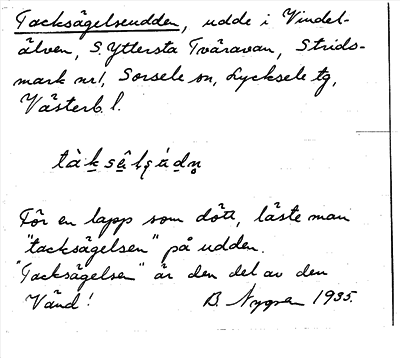 Tacksägelseudden, udde i Vindel-
älven, S. Yttersta Tväravan, Strids-
mark nr 1, Sorsele sn, Lycksele tg,
Västerb. l.
För en lapp som dött, läste man
"tacksägelsen" på udden.
"Tacksägelsen" är den del av den
Vänd! B. Nygren 1935.